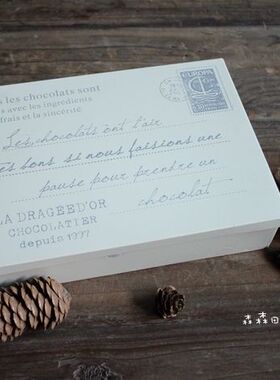 s les chocolats sont
s avec les ingrédients
frais et la sincérité
EUROPA
Les chocolats ont l'air
très bons si nous faisions une
pause pour prendre un
chocolat
LA DRAGÉED'OR
CHOCOLATIER
depuis 1977
森森日